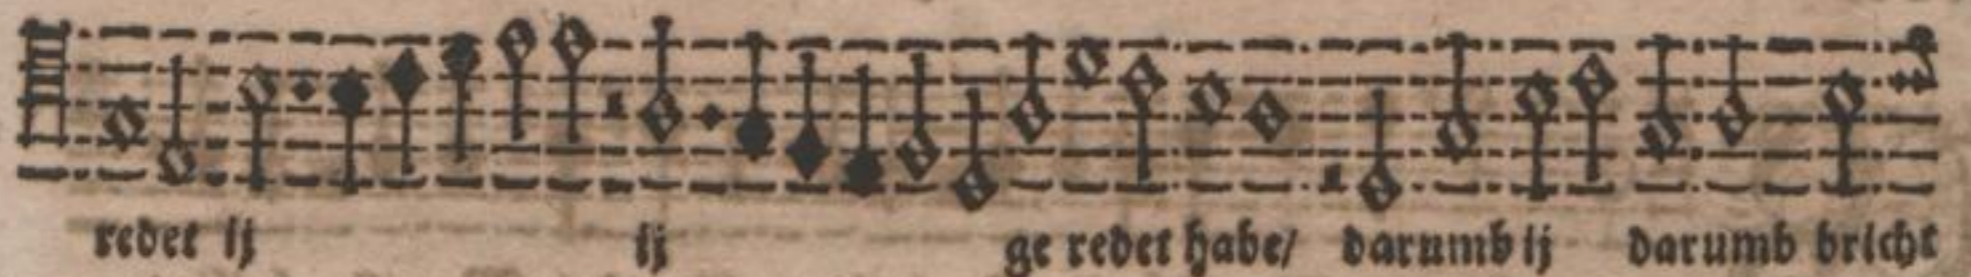 redet ij ij ge redet habe/ darumb ij darumb bricht